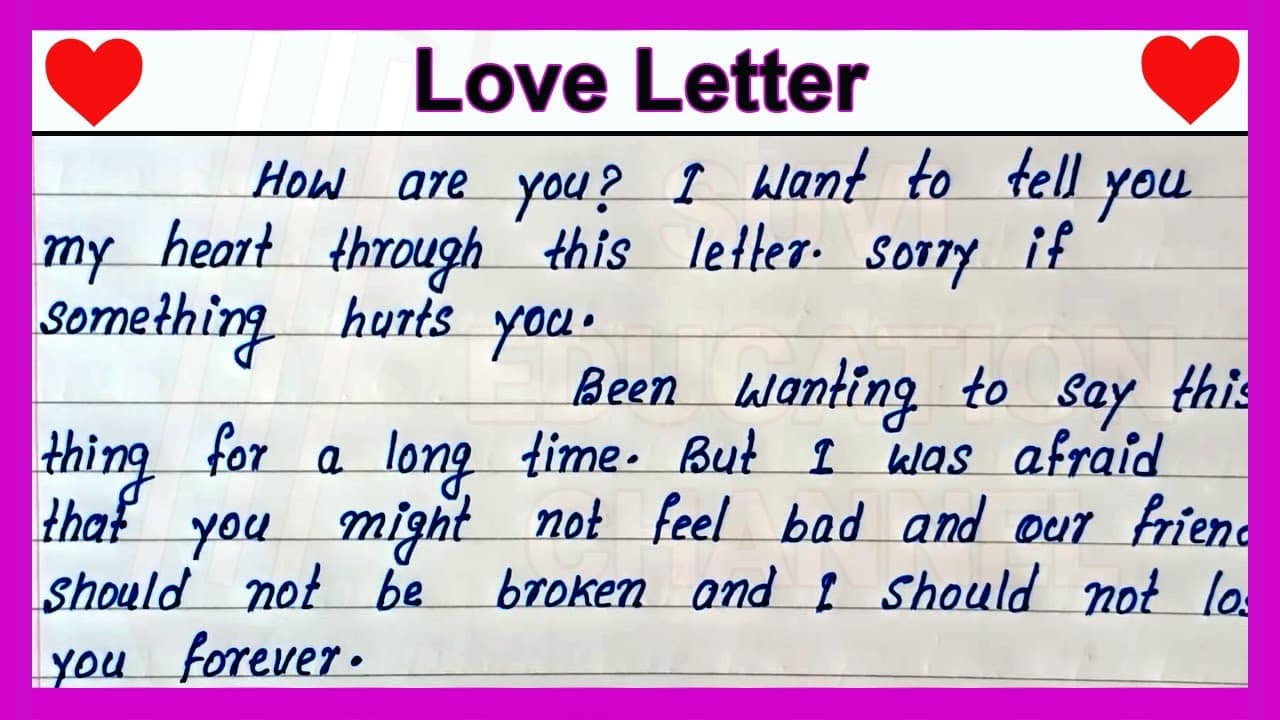 Love Letter
How are you? I want to tell you
my heart through this letter. sorry if
something hurts you.
Been wanting to say this
thing for a long time. But I was afraid
that you might not feel bad and our friend
should not be broken and I should not los
you forever.
SUVI
EDUCATION
CHANNEL